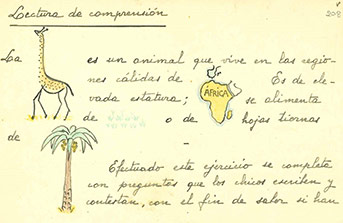 Lectura de comprensión
208
La es un animal que vive en las regio-
nes cálidas de ÁFRICA. Es de ele-
vada estatura; se alimenta
de o de hojas tiernas
de
Efectuado este ejercicio se completa
con preguntas que los chicos escriben y
contestan, con el fin de saber si han